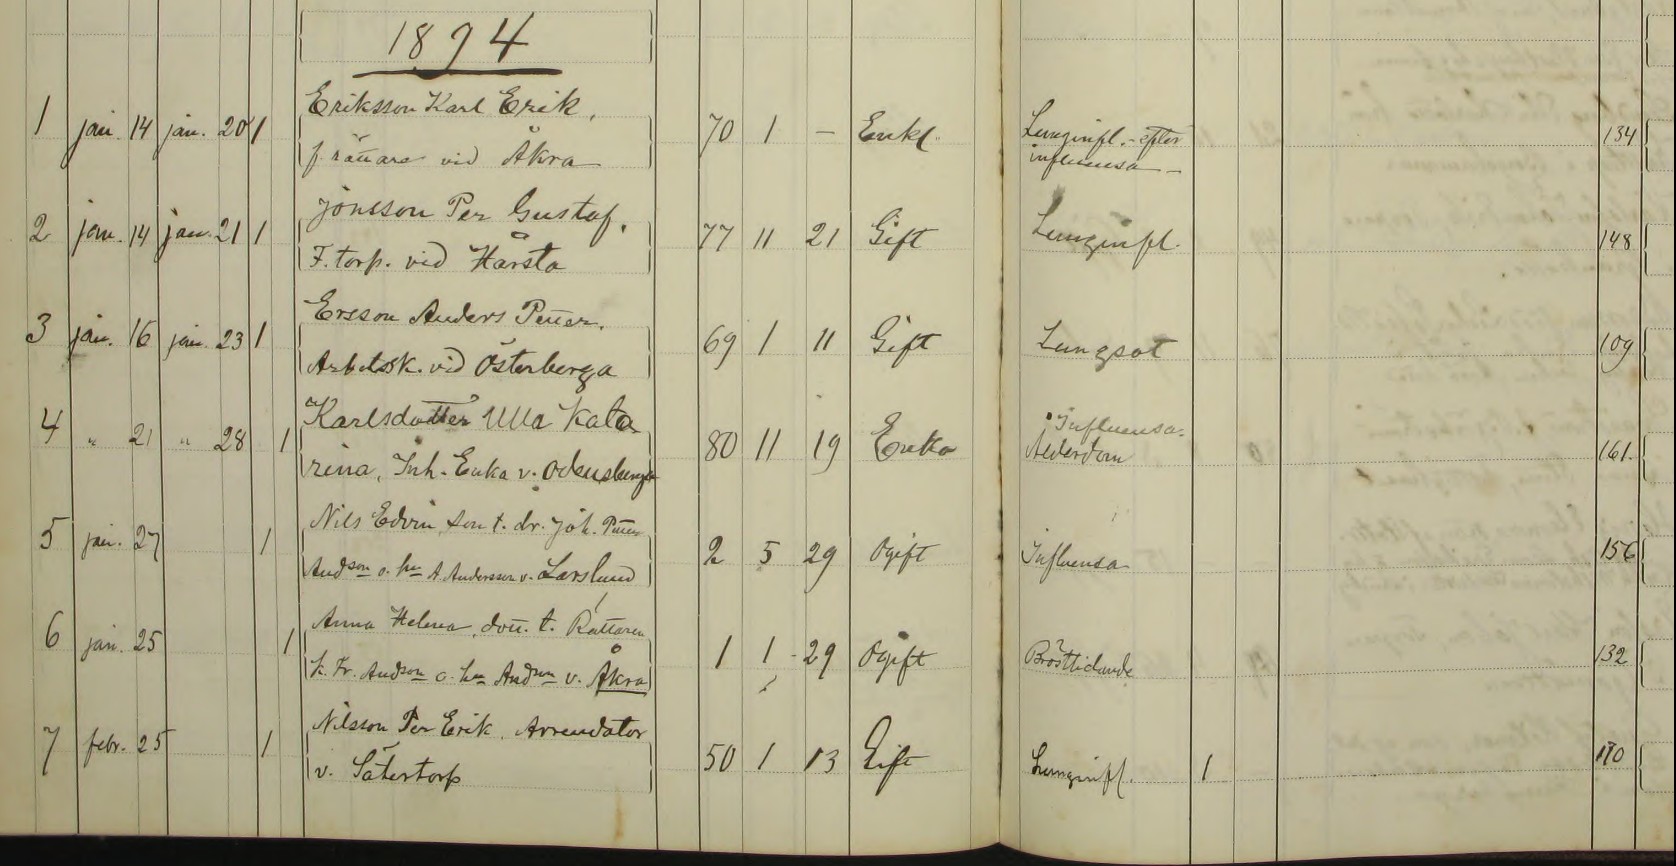 1894
1 jan. 14 jan. 20 1 Eriksson Karl Erik, 70 1 — Enkl. Lunginfl. - efter 134
f. rättare vid Åkra influensa —
2 jan. 14 jan. 21 1 Jönsson Per Gustaf, 77 11 21 Gift Lunginfl. 148
F. torp. vid Hårsta
3 jan. 16 jan. 23 1 Ersson Anders Petter. 69 1 11 Gift Lungsot 109
Arbetsk. vid Österberga
4 " 21 " 28 1 Karlsdotter Ulla Kata 80 11 19 Enka Influensa- 161.
rina, Inh. Enka v. Odensberga Ålderdom
5 jan. 27 1 Nils Edvin son t. dr. Joh. Petter 2 5 29 Ogift Influensa 156
Andson o. hu A. Andersson v. Larslund
6 jan. 25 1 Anna Helena, dott. t. Rättaren 1 1 29 Ogift Bröstlidande 132
K. Fr. Andson o. hu Andson v. Åkra
7 febr. 25 1 Nilsson Per Erik, Arrendator 50 1 13 Gift Lunginfl. 1 170
v. Sätertorp